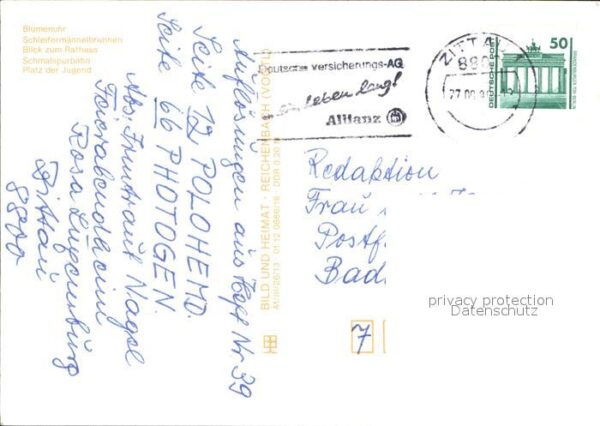 Blumenuhr
Schleifermännelbrunnen
Blick zum Rathaus
Schmalspurbahn
Platz der Jugend
Auflösungen aus Heft Nr 39
Seite 12 POLOHEMD.
Seite 66 PHOTOGEN.
Abs. Irmtraut Nagel
Feierabendheim
Rosa Luxemburg
Zittau
8800
BILD UND HEIMAT · REICHENBACH (VOGTL)
01 12 0866/16 DDR 0,20 M
Deutsche Versicherungs-AG
leben lang!
Allianz
ZITTAU
880
27.09.90
50
DEUTSCHE POST
Redaktion
Frau
Postf.
Bad
7
privacy protection
Datenschutz